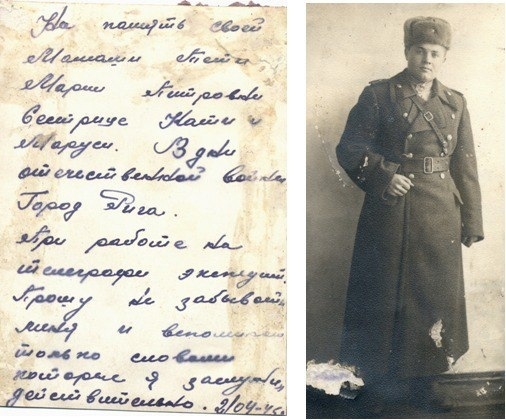 На память своей
Мамаши Тети
Марии Петровни
Сестрице Кати и
Маруси. В дни
отечественной войны
Город Рига.
При работе на
телеграфи
Прошу не забывать
меня и вспоминать
только словами
которые я заслужил,
действительно. 2/04-45г.